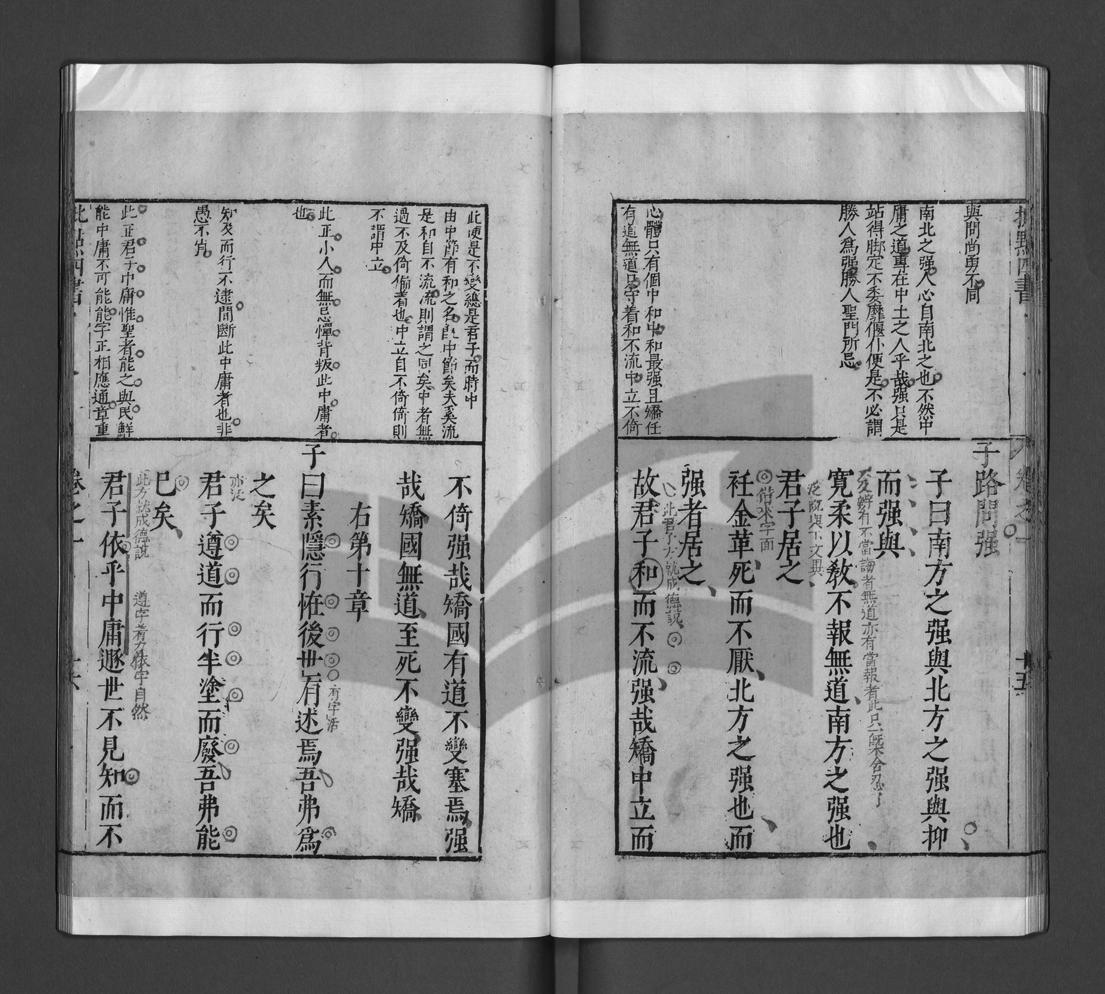 與問尚勇不同
南北之強人心自南北之也不然中
庸之道專在中土之人乎哉强只是
站得脚定不委靡偃仆便是不必謂
勝人爲强勝人聖門所忌
心體只有個中和中和最强且矯任
有道無道只守着和不流中立不倚
子路問强
子曰南方之强與北方之强與抑
而强與
寬柔以敎不報無道南方之强也
君子居之
衽金革死而不厭北方之强也而
强者居之
故君子和而不流强哉矯中立而
此便是不變總是君子而時中
由中節有和之名旣中節矣夫奚流
是和自不流流則謂之同矣中者無
過不及倚偏着也中立自不倚倚則
不謂中立
此正小人而無忌憚背叛此中庸者
也
知及而行不逮間斷此中庸者也非
愚不肖
此正君子中庸惟聖者能之與民鮮
能中庸不可能能字正相應通章重
不倚强哉矯國有道不變塞焉强
哉矯國無道至死不變强哉矯
右第十章
子曰素隱行恠後世有述焉吾弗爲
有字活
之矣
君子遵道而行半塗而廢吾弗能
已矣
此方説成德説
遵字着力依字自然
君子依乎中庸遯世不見知而不